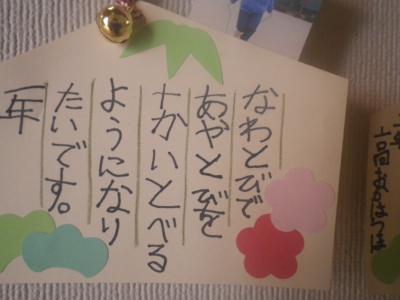 なわとびで
あやとびを
十かいとべる
ようになり
たいです。
一年